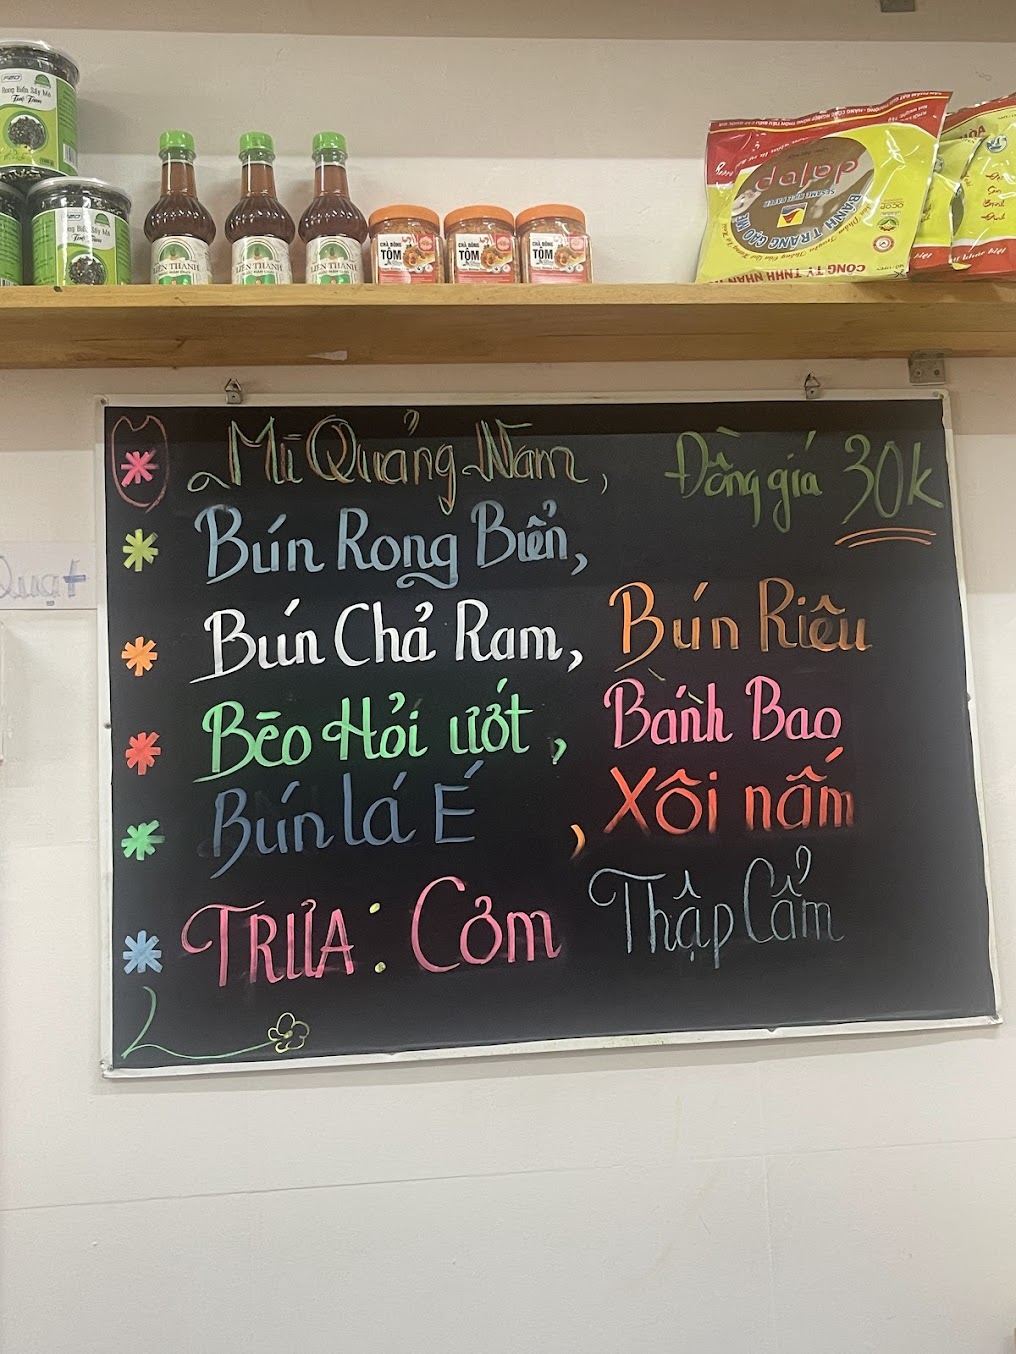 Rong Biển Sấy Mè
Rong Biển Sấy Mè
LIÊN THÀNH
LIÊN THÀNH
LIÊN THÀNH
CHÀ BÔNG
TÔM
CHÀ BÔNG
TÔM
CHÀ BÔNG
TÔM
dalop
SESAME RICE PAPER
BÁNH TRÁNG GẠO MÈ
OCOP
CÔNG TY TNHH NHÂN
Mì Quảng Nam, Đồng giá 30k
Bún Rong Biển,
Quạt
Bún Chả Ram, Bún Riêu
Bèo Hỏi ướt, Bánh Bao
Bún lá É , Xôi nấm
TRƯA: Cơm Thập Cẩm